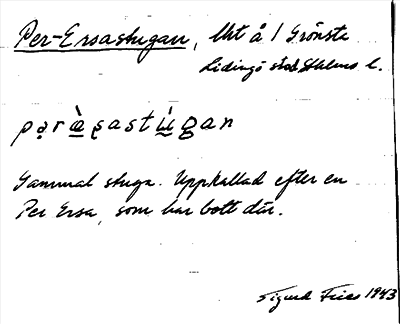 Per-Ersastugan, Äbt å 1 Grönsta
Lidingö stad Sthlms l.
pərὰ̱ṣastὺ̱gan
Gammal stuga. Uppkallad efter en
Per Ersa, som har bott där.
Sigurd Fries 1943